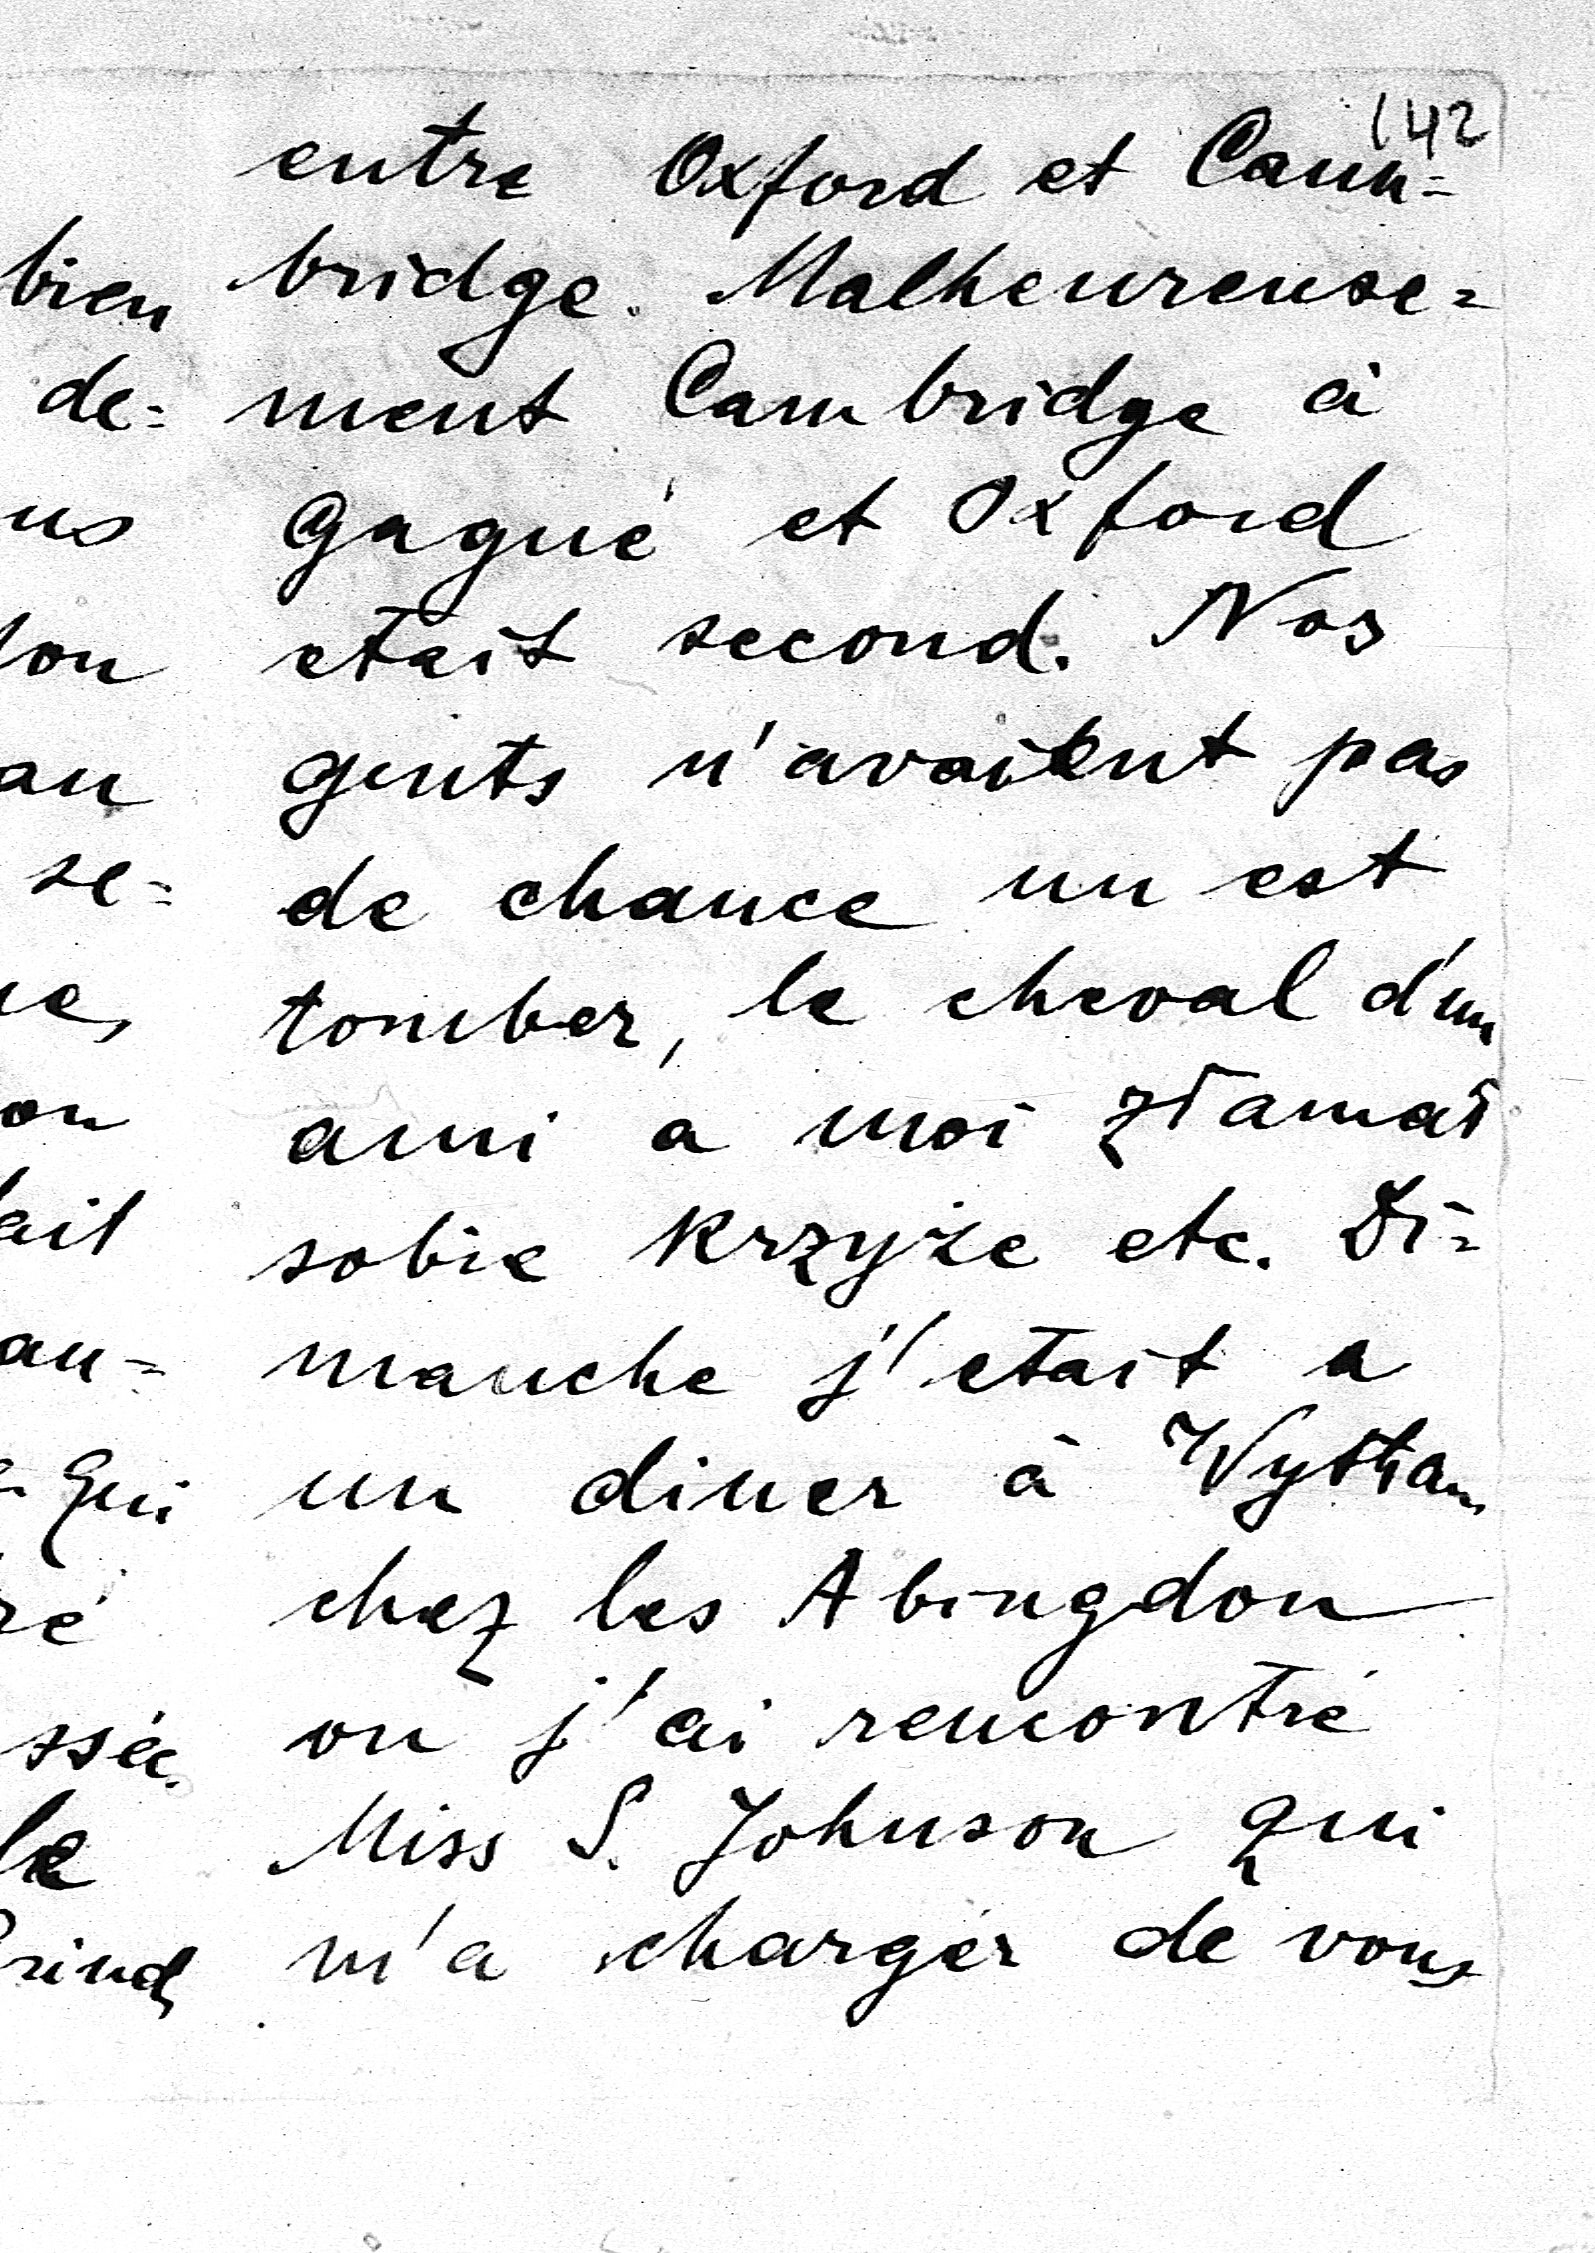 142
entre Oxford et Cam=
bridge. Malheureuse=
ment Cambridge à
gagné et Oxford
etait second. Nos
gents n'avaient pas
de chance un est
tomber, le cheval d'un
ami a moi złamał
sobie krzyże etc. Di=
manche j'etait a
un diner à Wytham
chez les Abingdon
ou j'ai rencontré
Miss S. Johnson qui
m'a charger de vous
bien
de=
us
ton
an
se=
on
ait
an=
qui
ré
ssée.
le